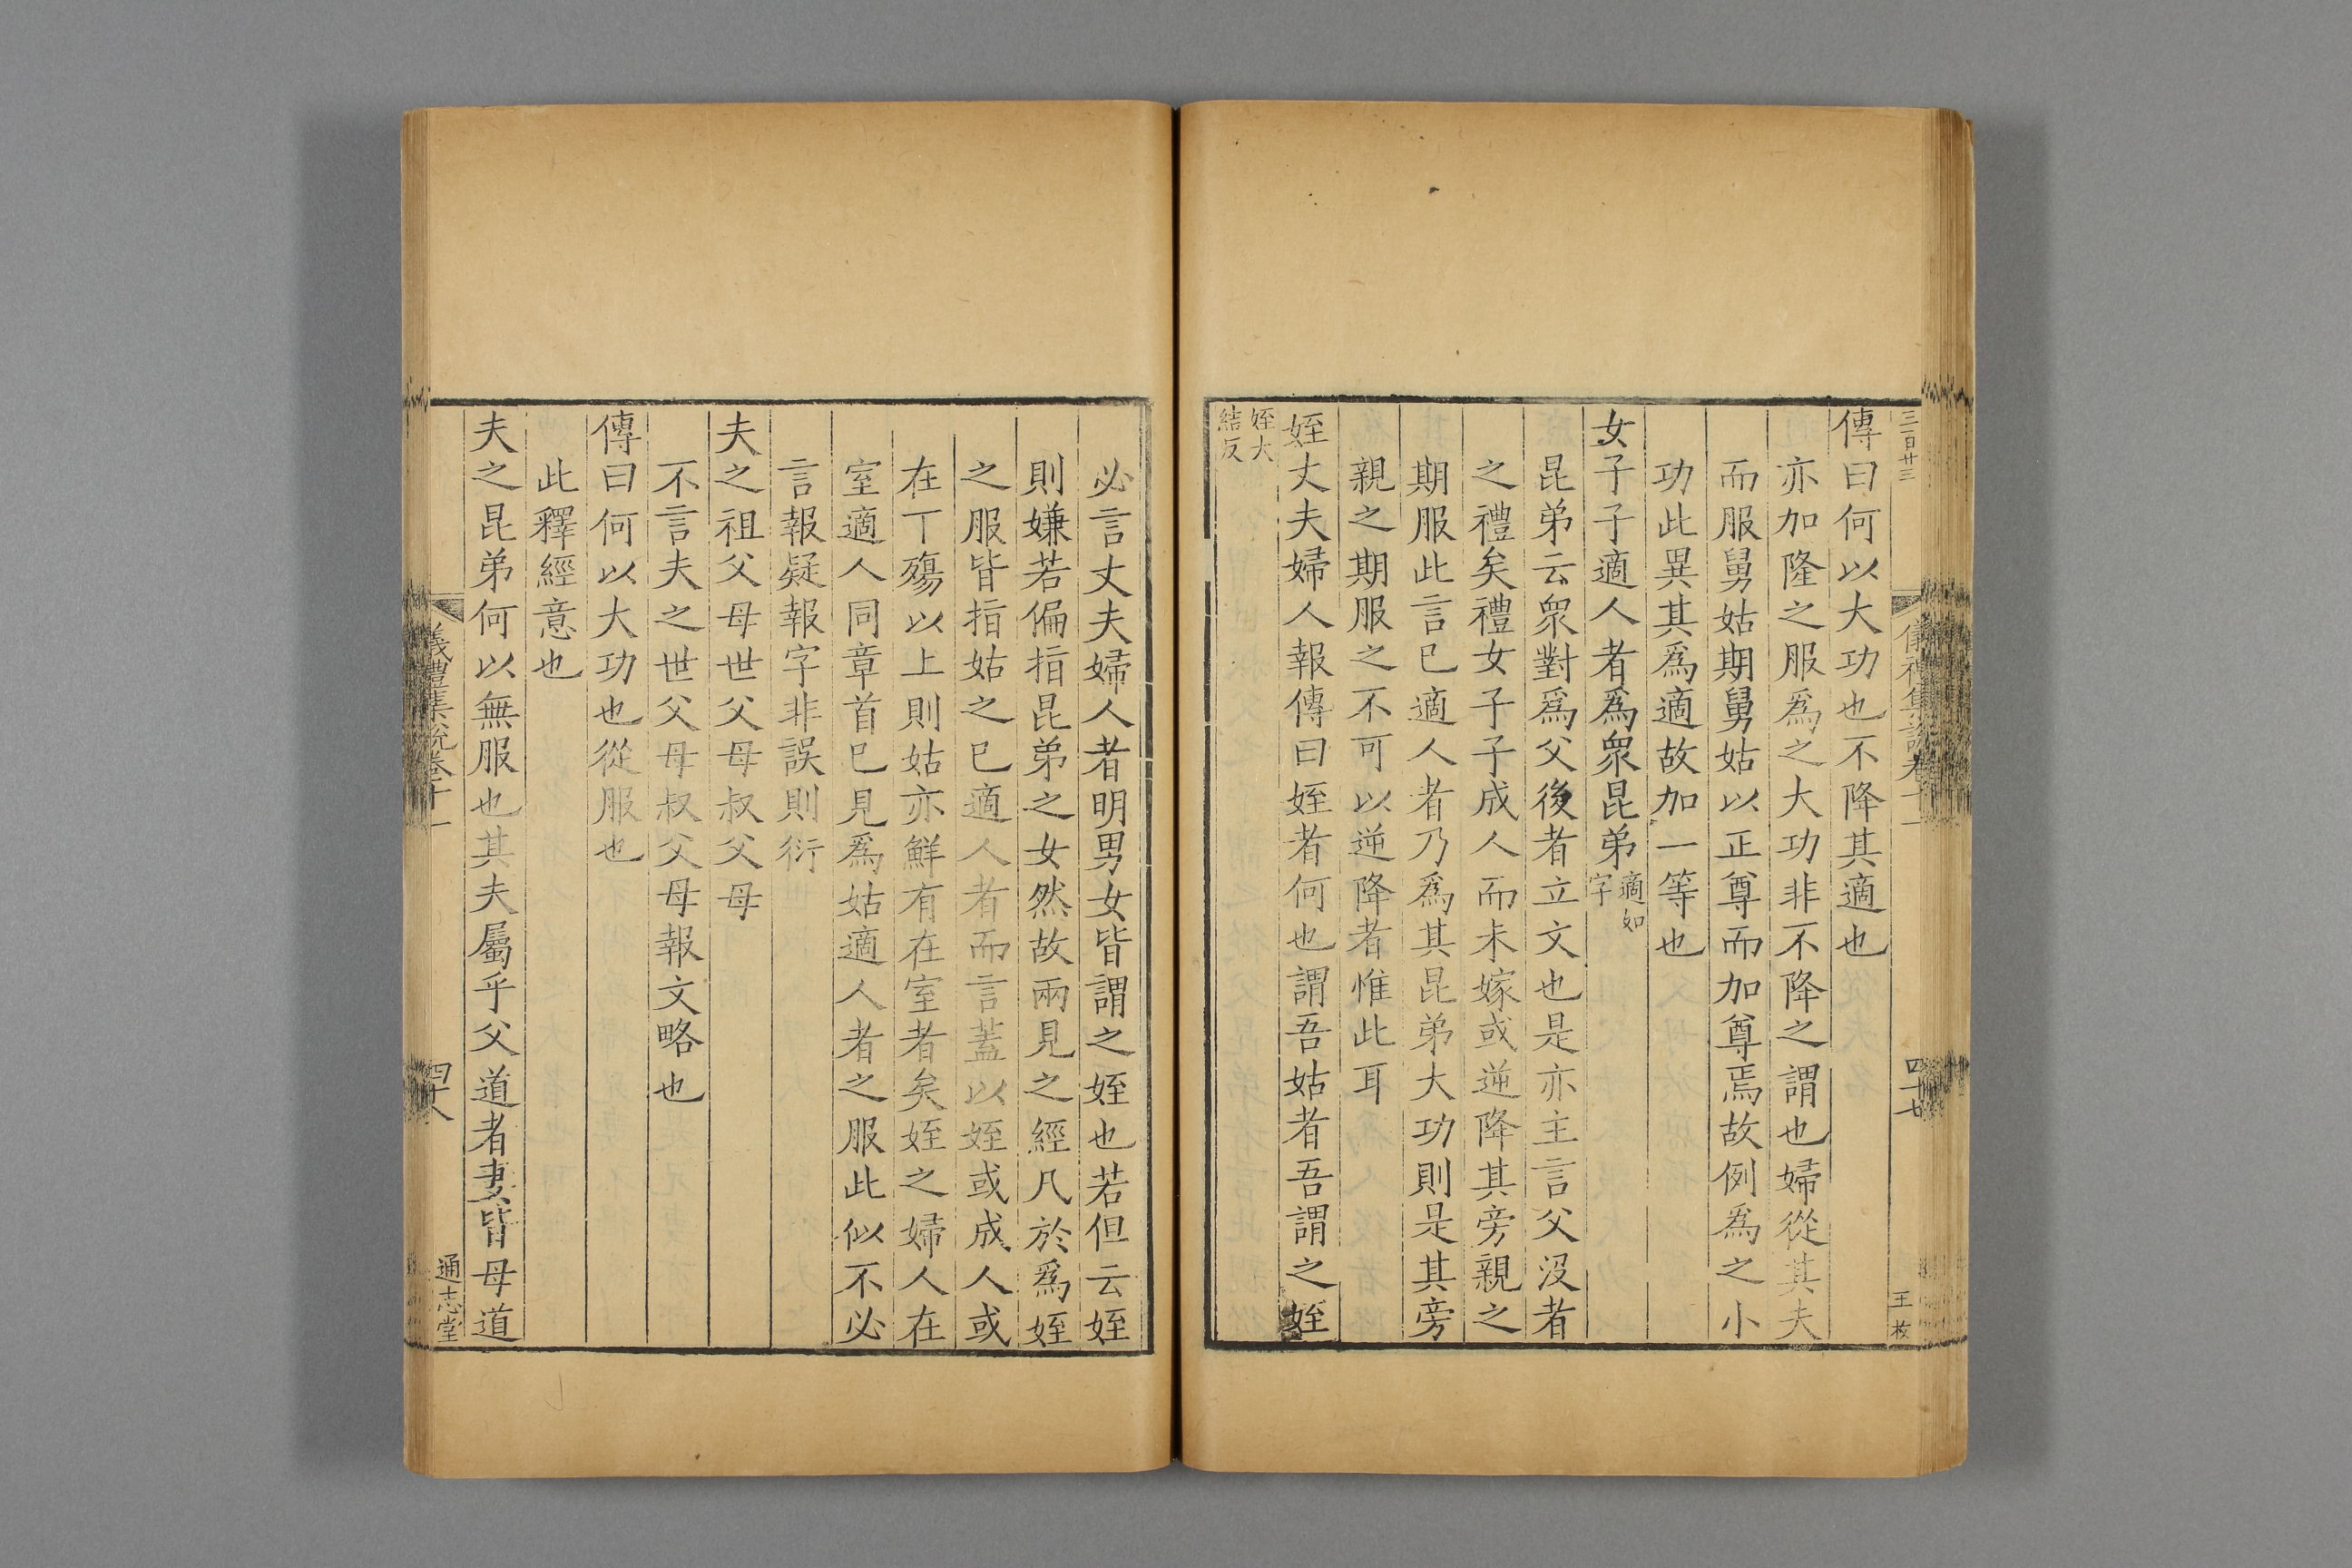 三百廿三
儀禮集說卷十一
四十七
王枚
傳曰何以大功也不降其適也
亦加隆之服爲之大功非不降之謂也婦從其夫
而服舅姑期舅姑以正尊而加尊焉故例爲之小
功此異其爲適故加一等也
女子子適人者爲衆昆弟適如字
昆弟云衆對爲父後者立文也是亦主言父沒者
之禮矣禮女子子成人而未嫁或逆降其旁親之
期服此言已適人者乃爲其昆弟大功則是其旁
親之期服之不可以逆降者惟此耳
姪丈夫婦人報傳曰姪者何也謂吾姑者吾謂之姪
姪大結反
必言丈夫婦人者明男女皆謂之姪也若但云姪
則嫌若偏指昆弟之女然故兩見之經凡於爲姪
之服皆指姑之已適人者而言蓋以姪或成人或
在下殤以上則姑亦鮮有在室者矣姪之婦人在
室適人同章首已見爲姑適人者之服此似不必
言報疑報字非誤則衍
夫之祖父母世父母叔父母
不言夫之世父母叔父母報文略也
傳曰何以大功也從服也
此釋經意也
夫之昆弟何以無服也其夫屬乎父道者妻皆母道
儀禮集說卷十一
四十八
通志堂